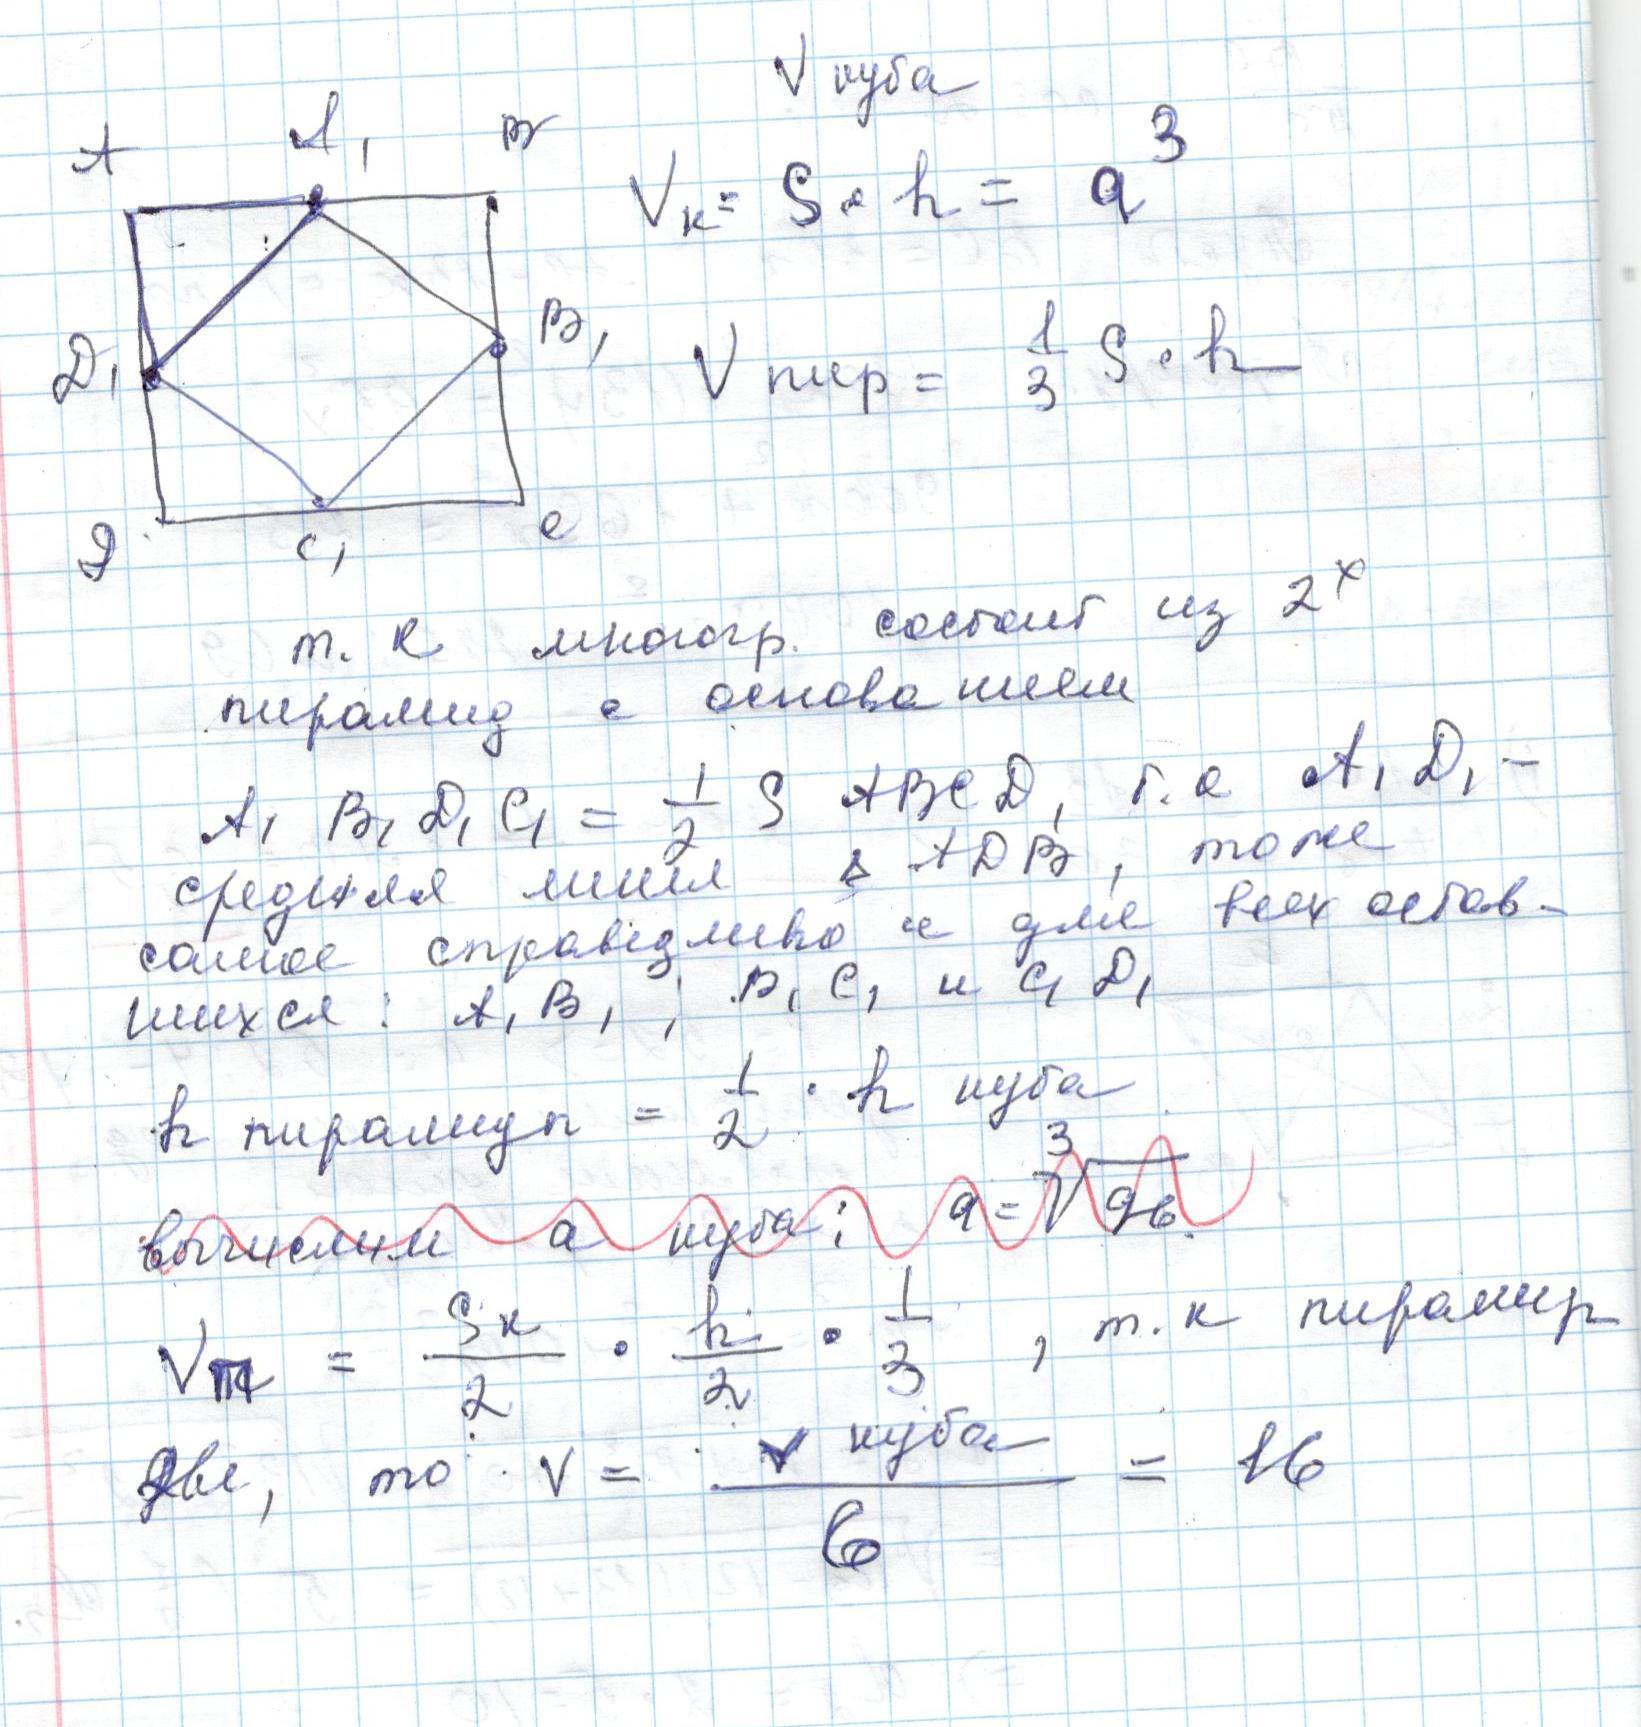 V куба
A A₁ B
Vк = S · h = a³
D₁ B₁
V пир = 1/3 S · h
D C₁ C
т. к многогр. состоит из 2ˣ
пирамид с основанием
A₁ B₁ D₁ C₁ = 1/2 S ABCD, т.к A₁ D₁ –
средняя линия Δ ADB, тоже
самое справедливо и для всех остав-
шихся: A₁ B₁ ; B₁ C₁ и C₁ D₁
h пирамиды = 1/2 · h куба
вычислим a куба: a = ³√96
Vп = Sк/2 · h/2 · 1/3 , т. к пирамид
две, то V = V куба/6 = 16